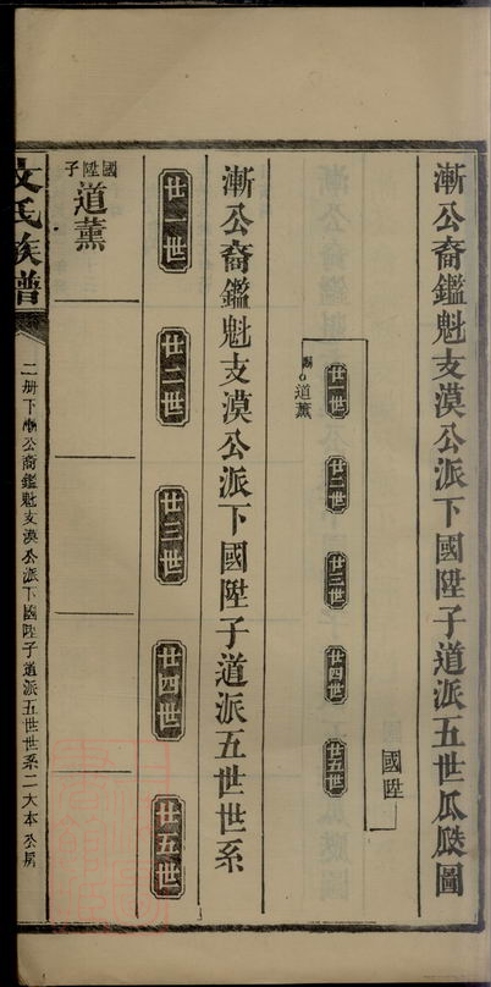 漸公裔鑑魁支漠公派下國陞子道派五世瓜瓞圖
國陞
廿一世
廿二世
廿三世
廿四世
廿五世
道薰
漸公裔鑑魁支漠公派下國陞子道派五世世系
廿一世
廿二世
廿三世
廿四世
廿五世
國陞子
道薰
文氏族譜
二册下漸公裔鑑魁支漠公派下國陞子道派五世世系二大本公房